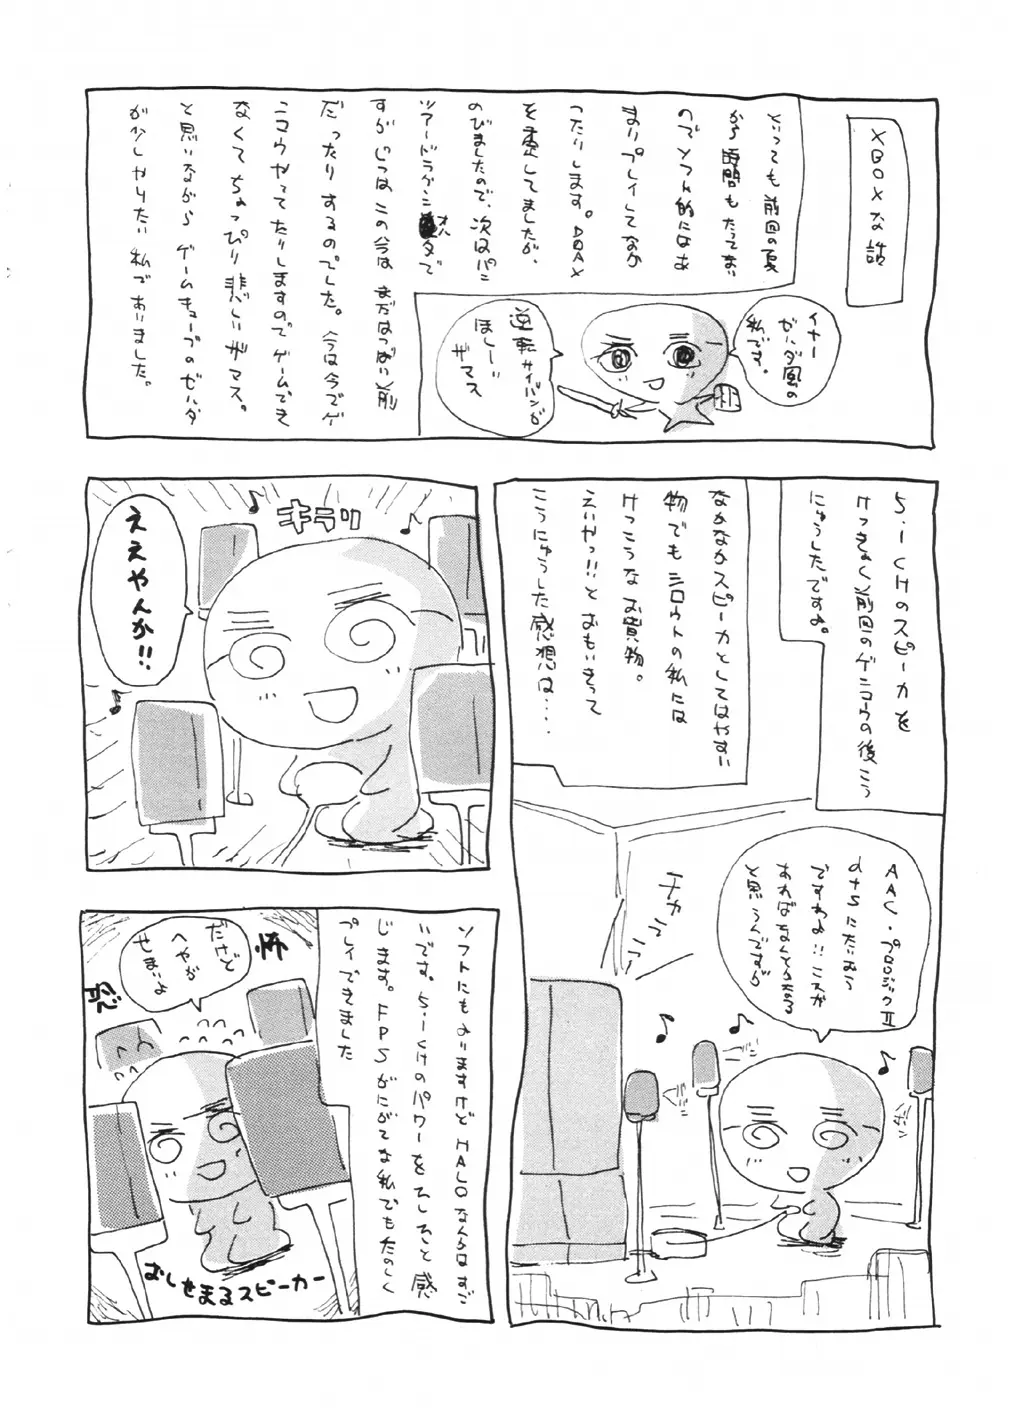 XBOXな話
といっても前回の夏
から時間もたってまい
のでソフト的にはあ
まりプレイしてなか
ったりします。DOAX
を楽ししてましたが、
のびましたので、次はパン
ツァードラグーンオルタで
すがじつはこの今はまだはつばい前
だったりするのでした。今は今でゲ
ニコウやってたりしますのでゲームできなくてちょっぴり悲しいザマス。
と思いながらゲームキューブのゼルダ
が少しやりたい私でありました。
イナー
ゼルダ風の
私です。
逆転サイバンが
ほしーい
ザマス
5.1CHのスピーカを
けっきょく前回のゲニコウの後こう
にゅうしたですよ。
なかなかスピーカとしてはやすい
物でもシロウトの私には
けっこうなお買物。
えいやっ!!とおもいきって
こうにゅうした感想は‥‥
AAC・プロロジックII
dtsにたいおう
ですわよ!!これが
あればなんでもなる
と思うんですが
チカ
キラリ
ええやんか!!
ソフトにもよりますけどHALOなんかはすご
いです。5.1CHのパワーをひしひしと感
じます。FPSがにがてな私でもたのしく
プレイできました
だけど
へやが
せまいよ
恐
怖
おしせまるスピーカー